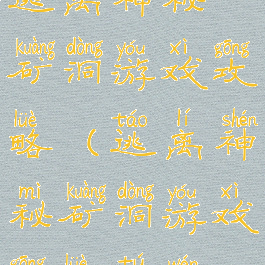 逃离神秘
kuàng dòng yóu xì gōng
矿洞游戏攻
lüè táo lí shén
略（逃离神
mì kuàng dòng yóu xì
秘矿洞游戏
gōng lüè tú wén